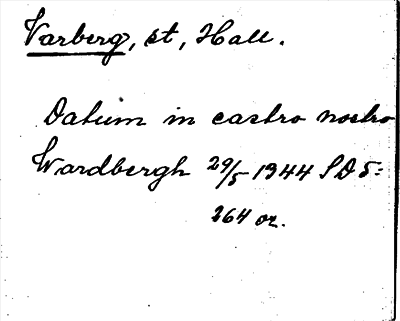 Varberg, st, Hall.
Datum in castro nostro
Wardbergh 29/5 1344 SD 5:
264 or.